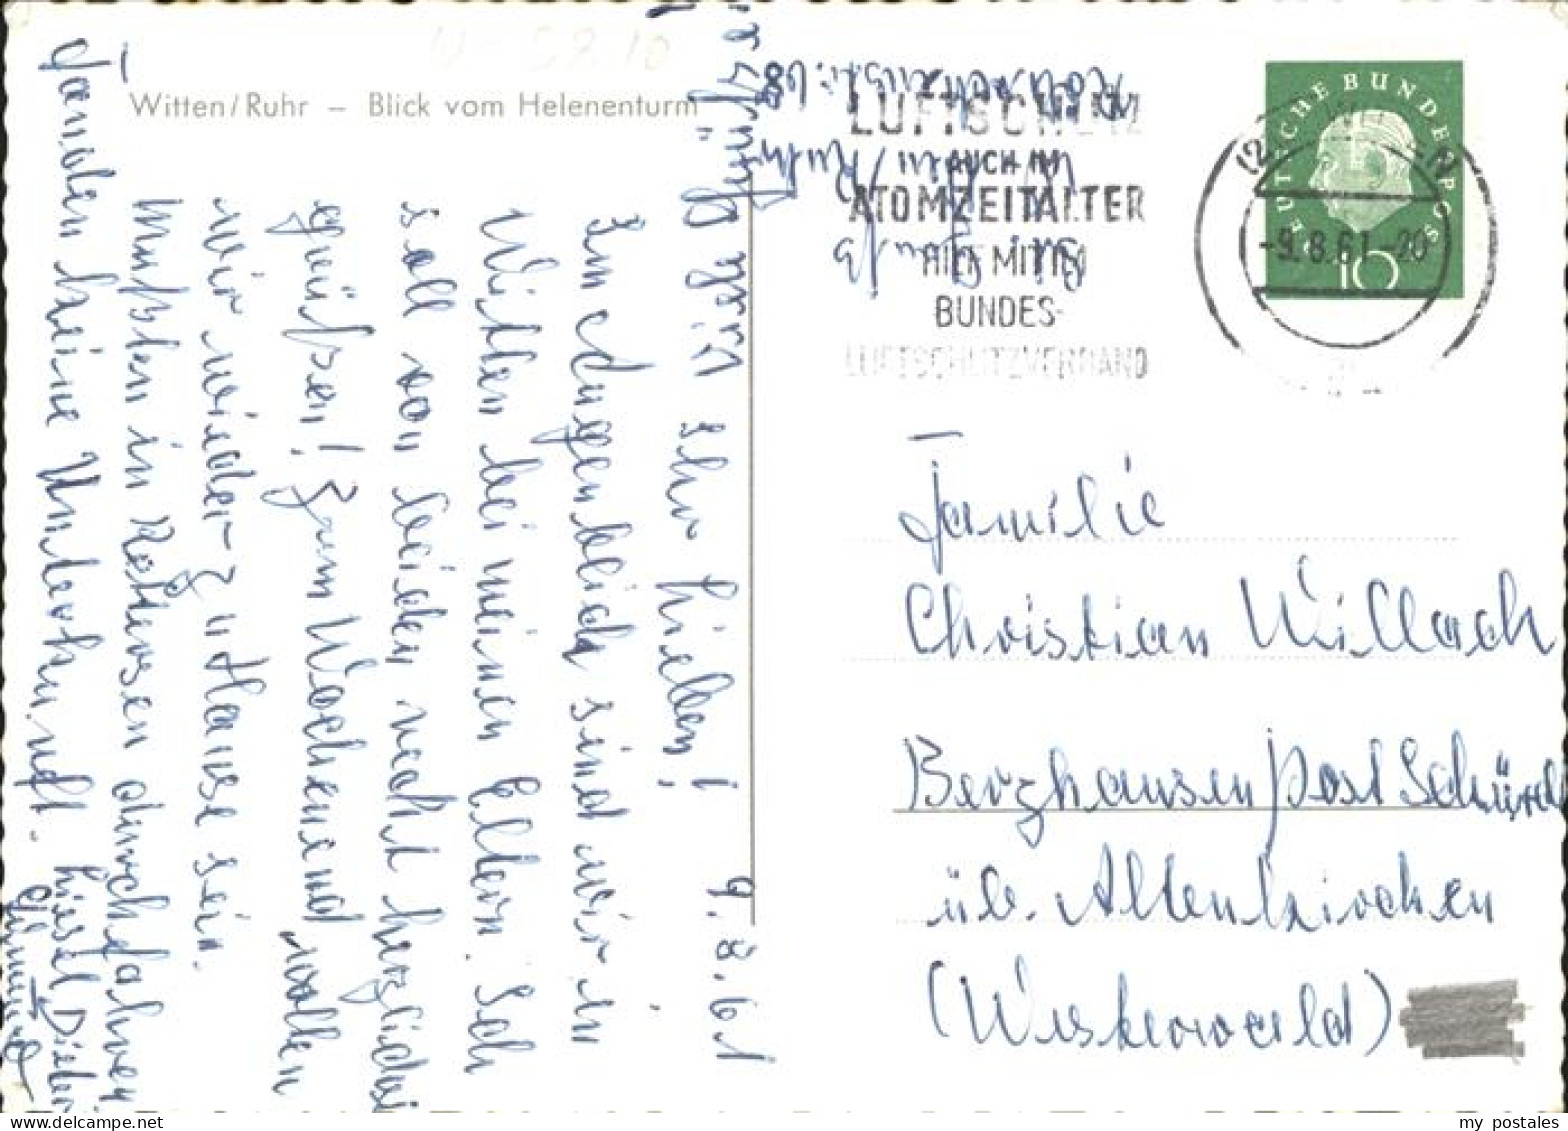 Witten/Ruhr – Blick vom Helenenturm
9.8.61
Ihr Lieben!
Im Augenblick sind wir in
Witten bei meinen Eltern. Ich
soll von beiden recht herzlich
grüßen! Zum Wochenend wollen
wir wieder zu Hause sein.
Mußten in Rottersen durchfahren
fanden keine Unterkunft.
Liesel Dieter
LUFTSCHUTZ
AUCH IM
ATOMZEITALTER
HILF MIT IM
BUNDES-
LUFTSCHUTZVERBAND
DEUTSCHE BUNDESPOST
10
-9.8.61-20
Familie
Christian Willach
Berghausen Post Schürdt
üb. Altenkirchen
(Westerwald)
my postales